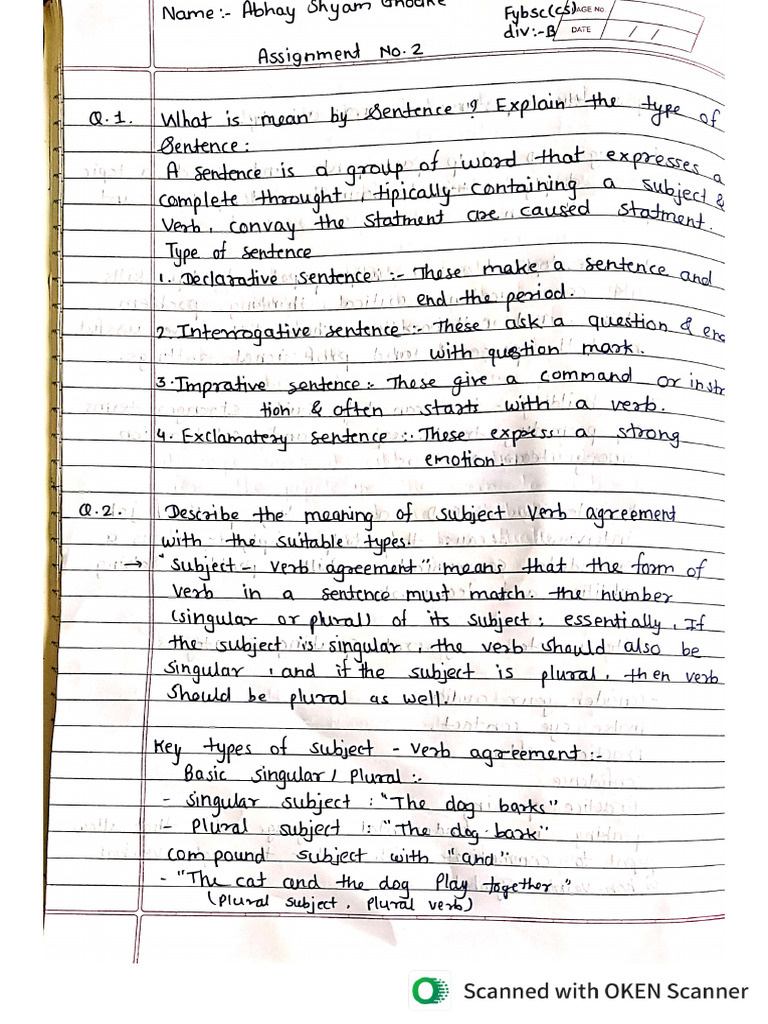 Name:- Abhay Shyam Ghodke
Fybsc(cs)
div:-B
PAGE No.
DATE / /
Assignment No. 2
Q.1. What is mean by sentence ? Explain the type of
Sentence:
A sentence is a group of word that expresses a
complete throught, tipically containing a subject &
verb, convay the statment are caused statment.
Type of sentence
1. Declarative sentence :- These make a sentence and
end the period.
2. Interrogative sentence :- These ask a question & end
with question mark.
3. Imprative sentence :- These give a command or instr
tion & often starts with a verb.
4. Exclamatery sentence :- These express a strong
emotion.
Q.2. Describe the meaning of subject verb agreement
with the suitable types.
→ "subject - verb agreement" means that the form of
verb in a sentence must match the number
(singular or plural) of its subject ; essentially, If
the subject is singular, the verb should also be
singular, and if the subject is plural, then verb
should be plural as well.
Key types of subject - verb agreement :-
Basic singular / Plural :-
- singular subject : "The dog barks"
- Plural subject : "The dog bark"
compound subject with "and"
- "The cat and the dog Play together"
(Plural subject, Plural verb)
Scanned with OKEN Scanner